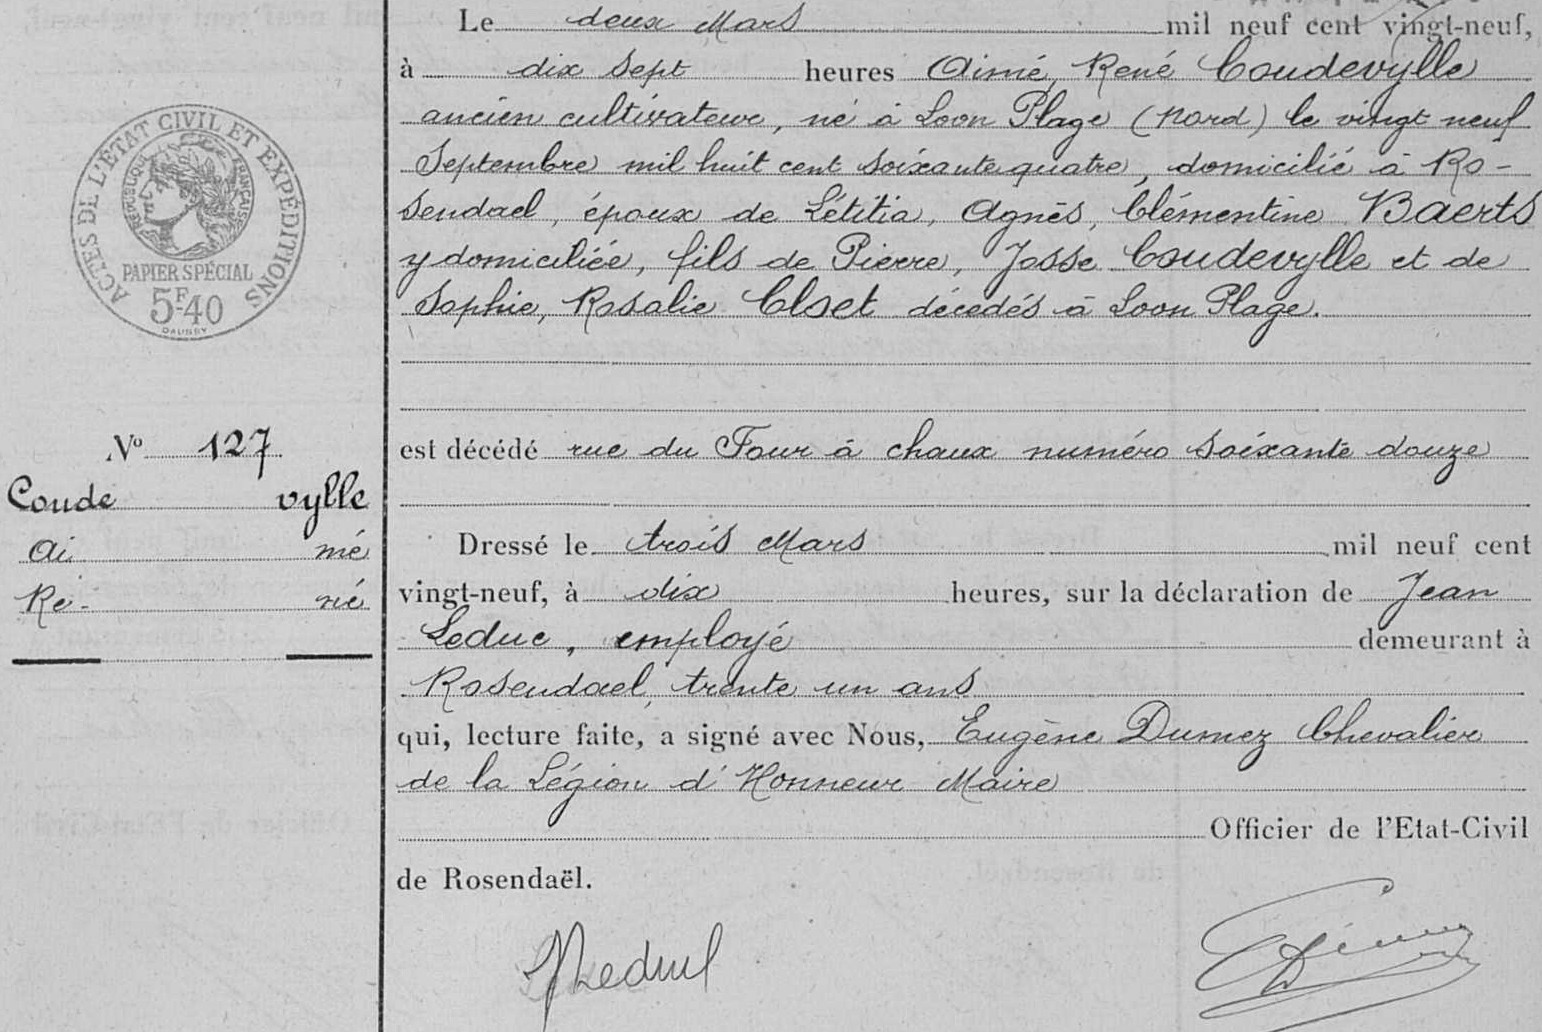 Le deux Mars mil neuf cent vingt-neuf,
à dix sept heures Aimé, René Coudevylle
ancien cultivateur, né à Loon Plage (Nord) le vingt neuf
Septembre mil huit cent soixante quatre, domicilié à Ro-
sendael, époux de Létitia, Agnès, Clémentine Baerts
y domiciliée, fils de Pierre, Josse Coudevylle et de
Sophie, Rosalie Clset décédés à Loon Plage.
ACTES DE L'ÉTAT CIVIL ET EXPÉDITIONS
RÉPUBLIQUE FRANÇAISE
PAPIER SPÉCIAL
5F.40
DAUSSY
No 127
Coude vylle
Ai mé
Re- né
est décédé rue du Four à chaux numéro soixante douze
Dressé le trois Mars mil neuf cent
vingt-neuf, à dix heures, sur la déclaration de Jean
Leduc, employé demeurant à
Rosendael, trente un ans
qui, lecture faite, a signé avec Nous, Eugène Dumez Chevalier
de la Légion d'Honneur Maire
Officier de l'Etat-Civil
de Rosendaël.
JLeduc